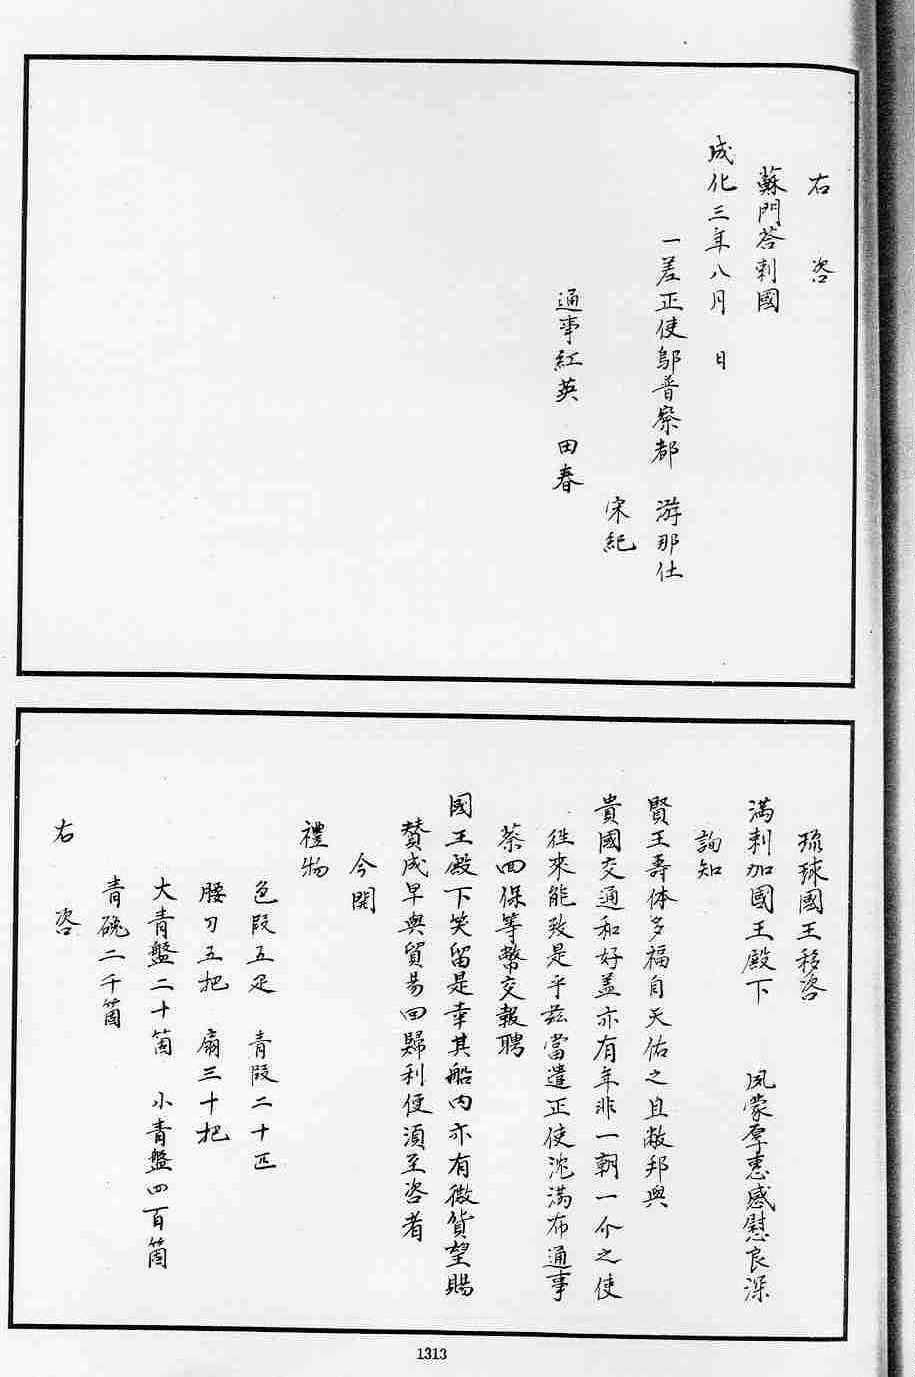 右　咨
蘇門荅剌國
成化三年八月　日
一差正使鄔普察都　游那仕
宋紀
通事紅英　田春
琉球國王移咨
滿剌加國王殿下　夙蒙厚惠感慰良深
詢知
賢王壽体多福自天佑之且敝邦與
貴國交通和好盖亦有年非一朝一介之使
徃來能致是乎茲當遣正使沈滿布通事
茶回保等幣交報聘
國王殿下笑留是幸其船内亦有微貨望賜
賛成早與貿易回歸利便湏至咨者
今開
禮物
色叚五疋　青叚二十匹
腰刀五把　扇三十把
大青盤二十箇　小青盤四百箇
青碗二千箇
右　咨
1313